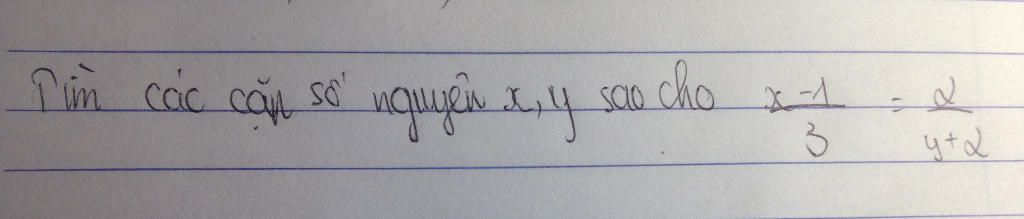 Tìm các cặn số nguyên x, y sao cho x-1/3 = 2/y+2